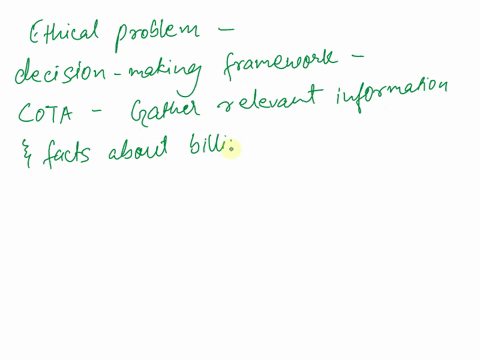 Ethical problem -
decision-making framework -
COTA - Gather relevant information
& facts about billi